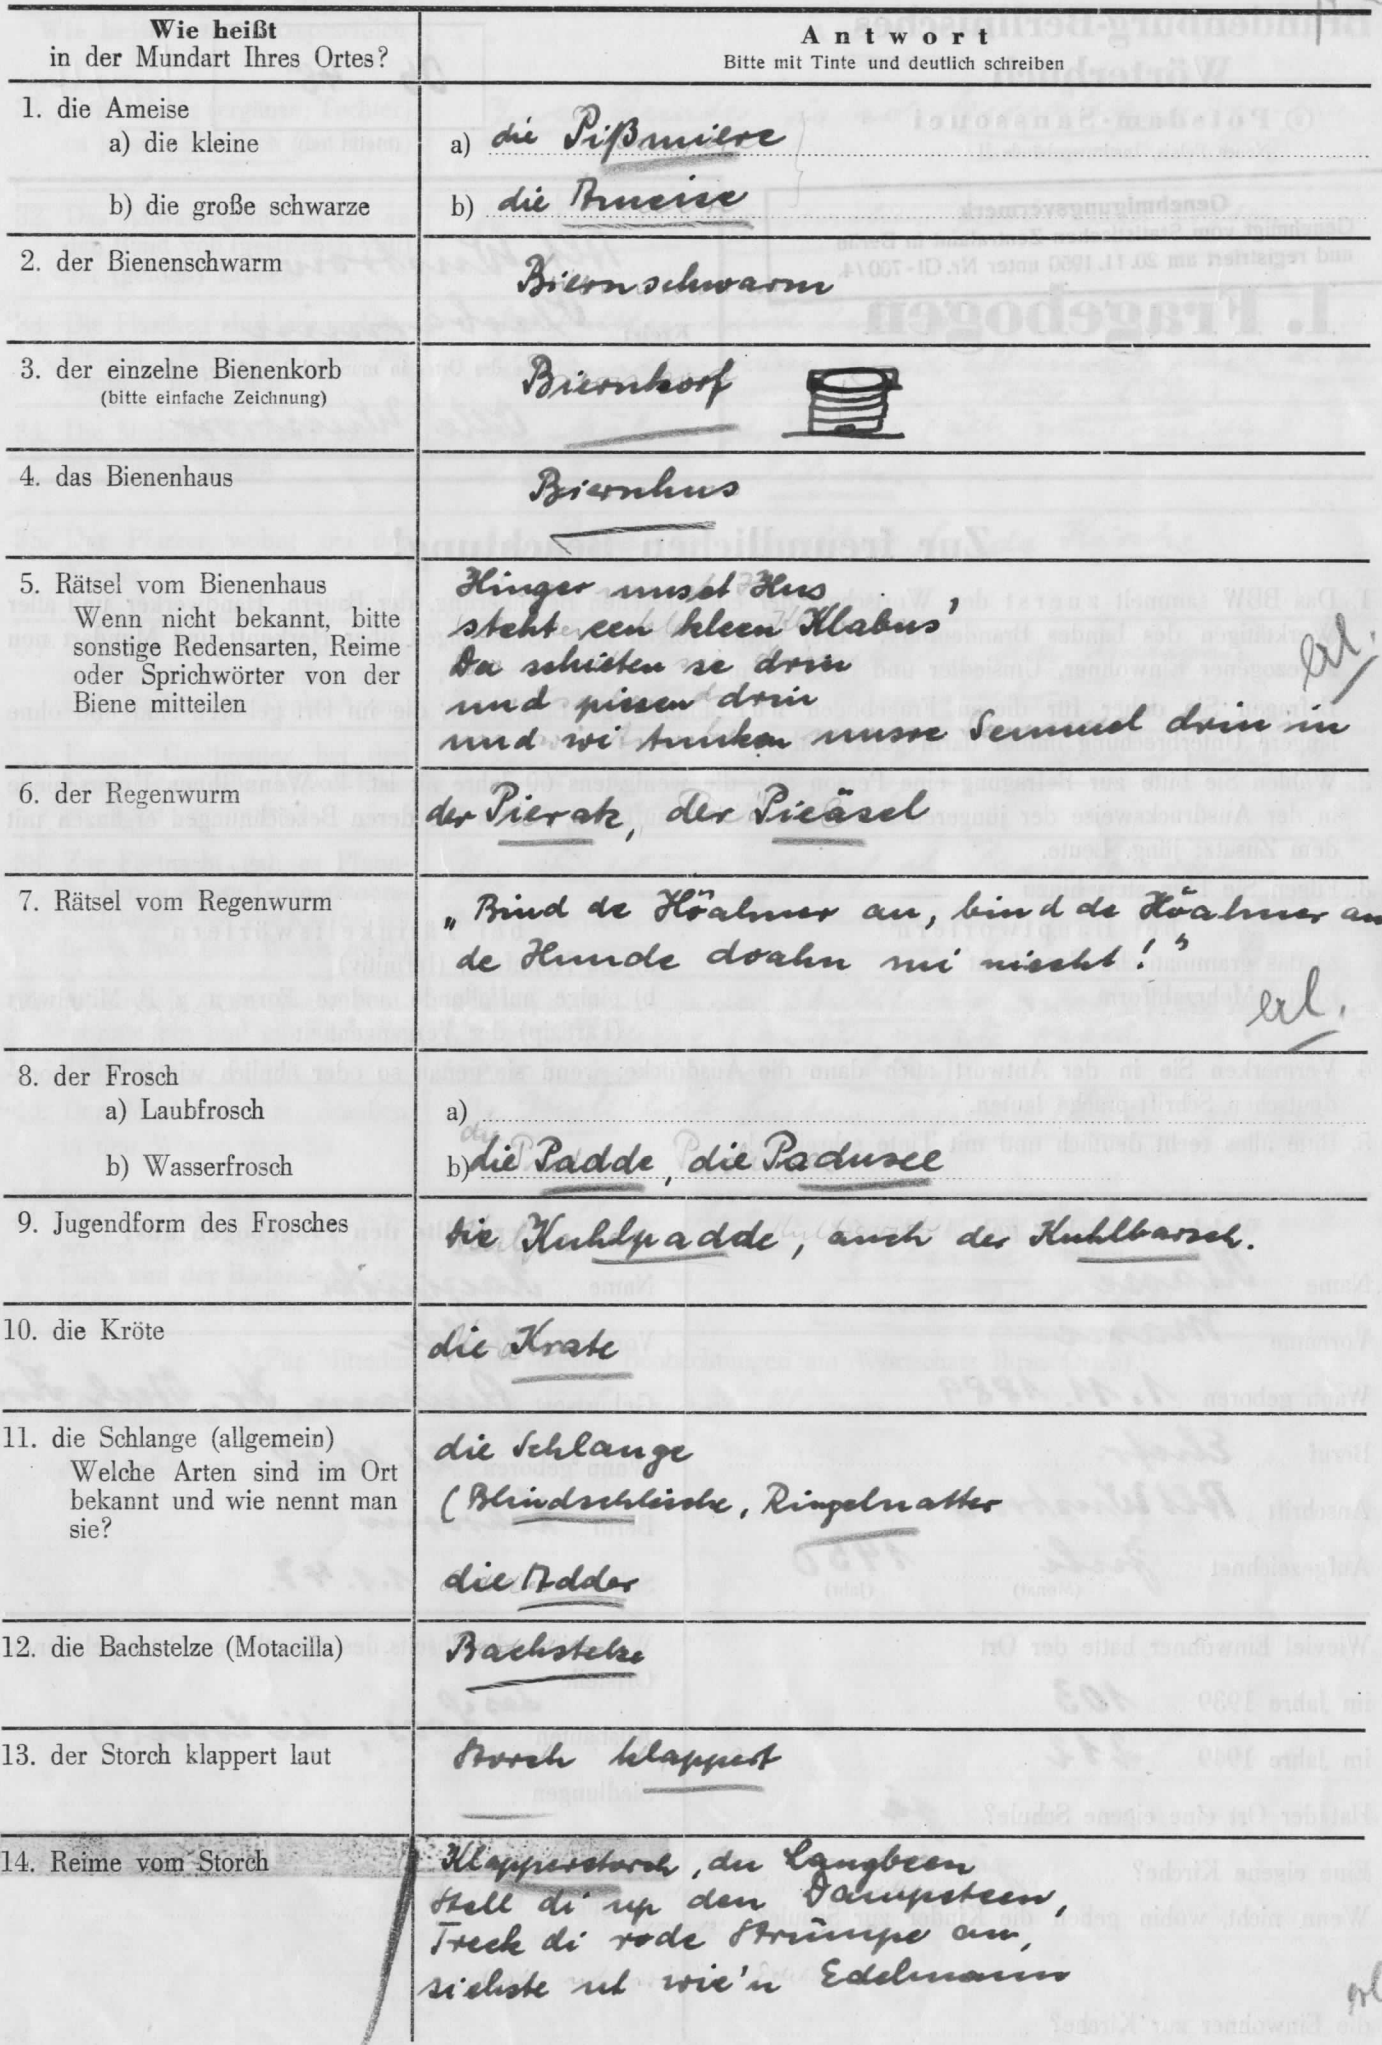 Wie heißt
in der Mundart Ihres Ortes?
Antwort
Bitte mit Tinte und deutlich schreiben
1. die Ameise
a) die kleine
a) die Pißmiere
b) die große schwarze
b) die Ameise
2. der Bienenschwarm
Biernschwarm
3. der einzelne Bienenkorb
(bitte einfache Zeichnung)
Biernkorf
4. das Bienenhaus
Biernhus
5. Rätsel vom Bienenhaus
Wenn nicht bekannt, bitte
sonstige Redensarten, Reime
oder Sprichwörter von der
Biene mitteilen
Hinger unset Hus
steht een kleen Klabus
Da schieten se drin
und pissen drin
und wi tunken unsre Semmel drin in
erl.
6. der Regenwurm
der Pieratz, der Pieäsel
7. Rätsel vom Regenwurm
„Bind de Höahner an, bind de Höahner an
de Hunde doahn mi nischt!"
erl.
8. der Frosch
a) Laubfrosch
a)
b) Wasserfrosch
b) die Padde, die Padusee
9. Jugendform des Frosches
die Kuhlpadde, auch der Kuhlbarsch.
10. die Kröte
die Krate
11. die Schlange (allgemein)
Welche Arten sind im Ort
bekannt und wie nennt man
sie?
die Schlange
(Blindschleiche, Ringelnatter
die Adder
12. die Bachstelze (Motacilla)
Bachstelze
13. der Storch klappert laut
Storch klappert
14. Reime vom Storch
Klapperstorch, du Langbeen
Stell di up den Dampsteen,
Treck di rode Strümpe an,
siehste ut wie'n Edelmann
erl